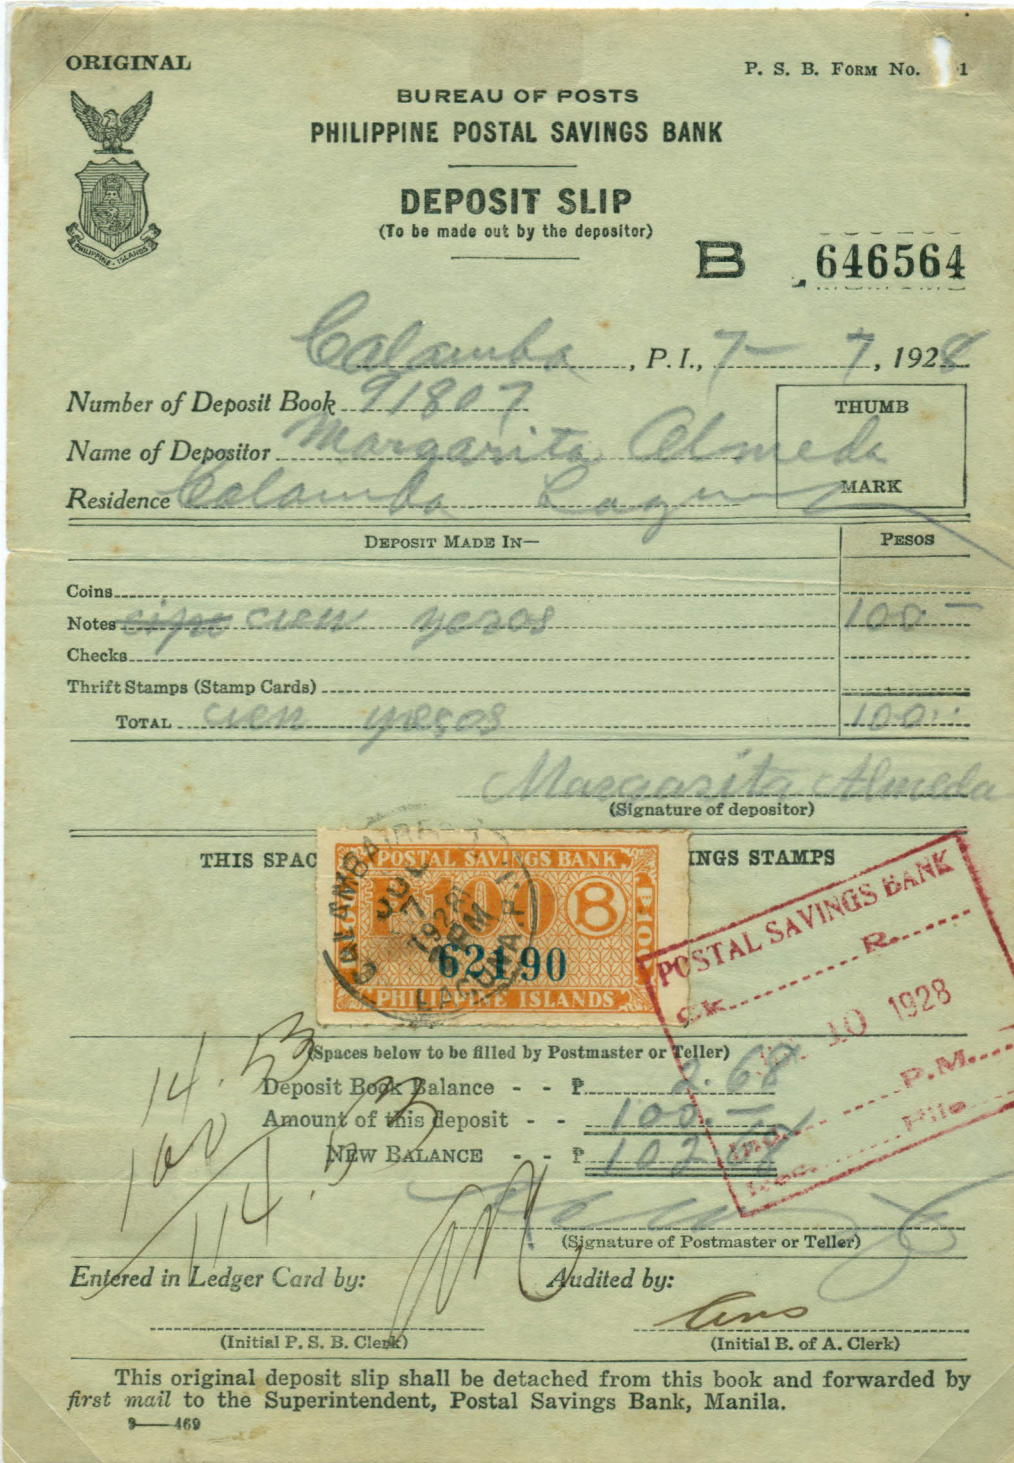 ORIGINAL
P. S. B. FORM No. 1
BUREAU OF POSTS
PHILIPPINE POSTAL SAVINGS BANK
DEPOSIT SLIP
(To be made out by the depositor)
PHILIPPINE ISLANDS
B 646564
Calamba, P. I., 7- 7, 1928
Number of Deposit Book 91807
THUMB
Name of Depositor Margarita Almeda
MARK
Residence Calamba Laguna
DEPOSIT MADE IN—
PESOS
Coins
Notes cien pesos 100.—
Checks
Thrift Stamps (Stamp Cards)
TOTAL cien pesos 100
Margarita Almeda
(Signature of depositor)
THIS SPAC
INGS STAMPS
POSTAL SAVINGS BANK
₱100 B
62190
PHILIPPINE ISLANDS
CALAMBA
JUL
7
1928
PM
LAGUNA P.I.
POSTAL SAVINGS BANK
R.
Ck.
10 1928
P.M.
File
(Spaces below to be filled by Postmaster or Teller)
Deposit Book Balance - - ₱ 2.68
Amount of this deposit - - 100.—
NEW BALANCE - - ₱ 102.68
14.53
100
114.53
(Signature of Postmaster or Teller)
Entered in Ledger Card by:
Audited by:
(Initial P. S. B. Clerk)
(Initial B. of A. Clerk)
This original deposit slip shall be detached from this book and forwarded by
first mail to the Superintendent, Postal Savings Bank, Manila.
3——469